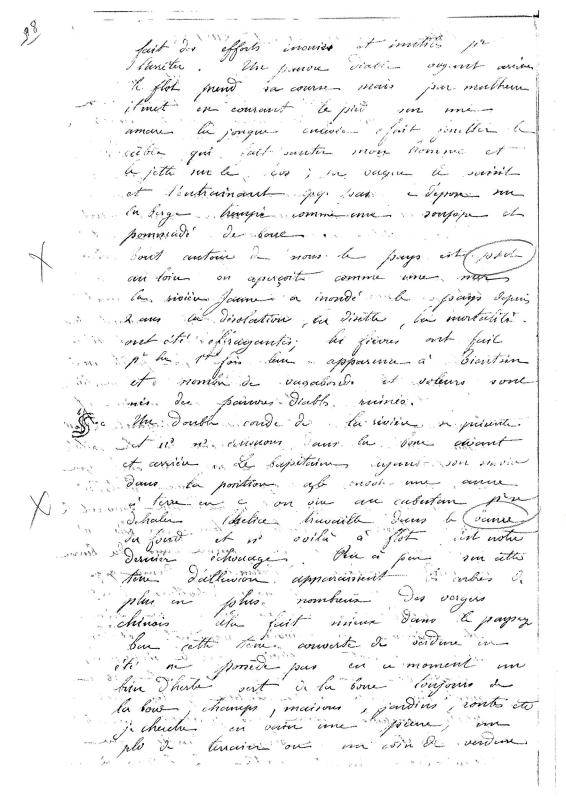 98
fait des efforts inouies et inutiles pr
l'arrêter. Un pauvre diable voyant arriver
le flot prend sa course mais par malheur
il met en courant le pied sur une
amarre la jonque fait le
câble qui fait sauter mon homme et
le jette sur le dos ; la vague le saisit
et l'entrainant le dépose sur
la berge trempé comme une soupape et
pommadé de boue.
tout autour de nous le pays est plat
au loin on aperçoit comme une mer
la rivière Jaune a inondé le pays depuis
2 ans la désolation, la disette, la mortalité
ont été effrayantes ; les fièvres ont fait
pr la 1re fois leur apparence à Tientsin
et nombre de vagabonds et voleurs sont
nés des pauvres diables ruinés.
Un double coude de la rivière se présente
et ns ns dans la boue avant
et arrière. Le Capitaine ayant son navire
dans la position envoi une ancre
à terre on vire au cabestan pr
dehaler l'hélice travaille dans la vase
du fond et ns voilà à flot est notre
dernier échouage. Peu à peu sur cette
terre d'alluvion apparaissent arbres de
plus en plus nombreux des vergers
chinois fait mieux dans le paysage
car cette terre couverte de verdure en
été ne possède pas en ce moment un
brin d'herbe sort de la boue toujours de
la boue, champs, maisons, jardins, routes etc
je cherche en vain une pierre, un
de terrain ou un coin de verdure